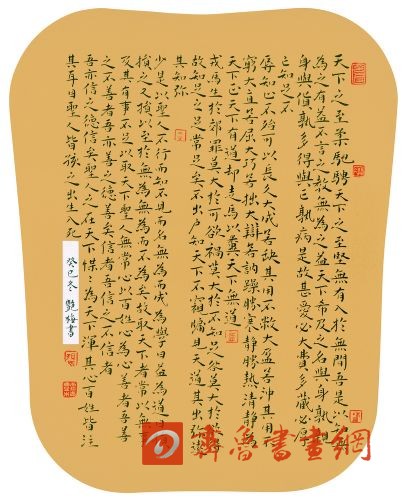 天下之至柔馳騁天下之至堅無有入於無間吾是以知無
為之有益不言之教無為之益天下希及之名與身孰親
身與貨孰多得與亡孰病是故甚愛必大費多藏必厚
亡知足不
辱知止不殆可以長久大成若缺其用不敝大盈若沖其用不
窮大直若屈大巧若拙大辯若訥躁勝寒靜勝熱清靜為
天下正天下有道却走馬以糞天下無道
戎馬生於郊罪莫大於可欲禍莫大於不知足咎莫大於欲得
故知足之足常足矣不出戶知天下不窺牖見天道其出弥遠
其知弥
少是以聖人不行而知不見而名無為而成為學日益為道日
損之又損以至於無為無為而不為矣故取天下者常以無事
及其有事不足以取天下聖人無常心以百姓心為心善者吾善
之不善者吾亦善之德善矣信者吾信之不信者
吾亦信之德信矣聖人之在天下惵惵為天下渾其心百姓皆注
其耳目聖人皆孩之出生入死
癸巳冬 艷梅書
齊魯書畫網